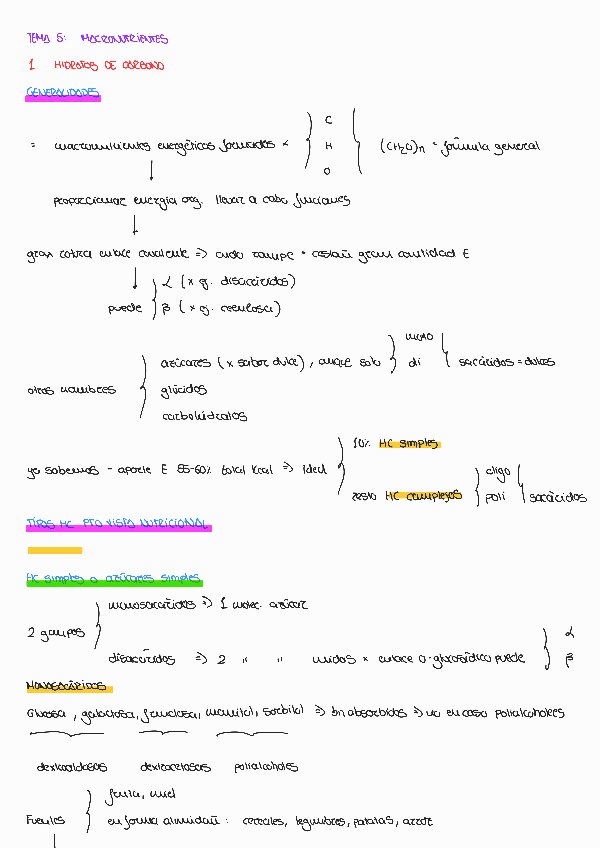 TEMA 5: MACRONUTRIENTES
1 HIDRATOS DE CARBONO
GENERALIDADES
= macronutrientes energéticos formados x C H O (CH2O)n = fórmula general
proporcionar energía org. llevar a cabo funciones
gran cobra enlace covalente => cndo rompe = gran cantidad E
puede
α (x ej. disacáridos)
β (x ej. celulosa)
otros nombres
azúcares (x sabor dulce), aunque solo mono di sacáridos = dulces
glúcidos
carbohidratos
ya sabemos - aporte E 55-60% total Kcal => ideal
10% HC simples
resto HC complejos oligo poli sacáridos
TIPOS HC PTO VISTA NUTRICIONAL
HC simples o azúcares simples
2 grupos
monosacáridos => 1 molec. azúcar
disacáridos => 2 " " unidos x enlace o-glucosídico puede α β
MONOSACÁRIDOS
Glucosa, galactosa, fructosa, manitol, sorbitol => bn absorbidos => no en caso polialcoholes
dextroaldosas dextrocetosas polialcoholes
Fuentes
fruta, miel
en forma almidón: cereales, legumbres, patatas, arroz